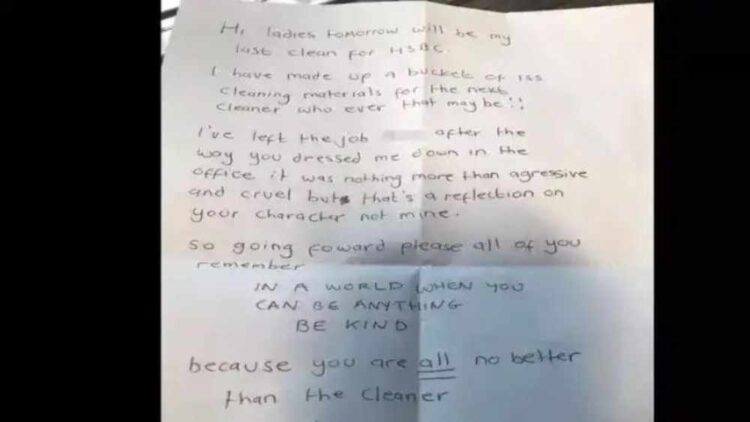 Hi ladies tomorrow will be my
last clean for HSBC.
I have made up a bucket of ISS
cleaning materials for the next
cleaner who ever that may be!!
I've left the job after the
way you dressed me down in the
office it was nothing more than agressive
and cruel but that's a reflection on
your character not mine.
So going foward please all of you
remember
IN A WORLD WHEN YOU
CAN BE ANYTHING
BE KIND
because you are all no better
than the cleaner